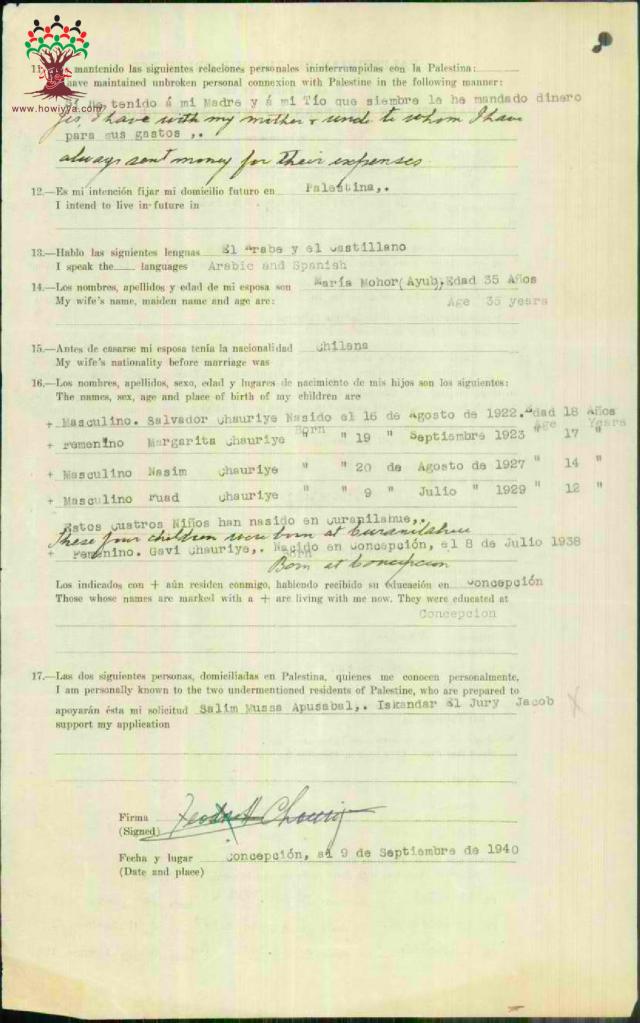 www.howiyya.com
11. mantenido las siguientes relaciones personales ininterrumpidas con la Palestina:
have maintained unbroken personal connexion with Palestine in the following manner:
Si he tenido á mi Madre y á mi Tío que siembre le he mandado dinero
Yes, I have with my mother & uncle to whom I have
para sus gastos ,.
always sent money for their expenses
12.—Es mi intención fijar mi domicilio futuro en Palestina,.
I intend to live in future in
13.—Hablo las siguientes lenguas El Arabe y el Castillano
I speak the languages Arabic and Spanish
14.—Los nombres, apellidos y edad de mi esposa son María Mohor(Ayub),Edad 35 Años
My wife's name, maiden name and age are: Age 35 years
15.—Antes de casarse mi esposa tenía la nacionalidad Chilena
My wife's nationality before marriage was
16.—Los nombres, apellidos, sexo, edad y lugares de nacimiento de mis hijos son los siguientes:
The names, sex, age and place of birth of my children are
+ Masculino. Salvador Chauriye Nasido el 16 de Agosto de 1922. Edad 18 Años
Born Age Years
+ Femenino Margarita Chauriye " " 19 " Septiembre 1923 " 17 "
+ Masculino Nasim Chauriye " " 20 de Agosto de 1927 " 14 "
+ Masculino Fuad Chauriye " " 9 " Julio " 1929 " 12 "
Estos cuatros Niños han nasido en Curanilahue,.
These four children were born at Curanilahue
+ Femenino. Gevi Chauriye,. Nacido en Concepción, el 8 de Julio 1938
Born
Born at Concepcion
Los indicados con + aún residen conmigo, habiendo recibido su educación en Concepción
Those whose names are marked with a + are living with me now. They were educated at
Concepcion
17.—Las dos siguientes personas, domiciliadas en Palestina, quienes me conocen personalmente,
I am personally known to the two undermentioned residents of Palestine, who are prepared to
apoyarán ésta mi solicitud Salim Mussa Apusabal,. Iskandar El Jury Jacob X
support my application
Firma
(Signed)
Fecha y lugar Concepción, el 9 de Septiembre de 1940
(Date and place)